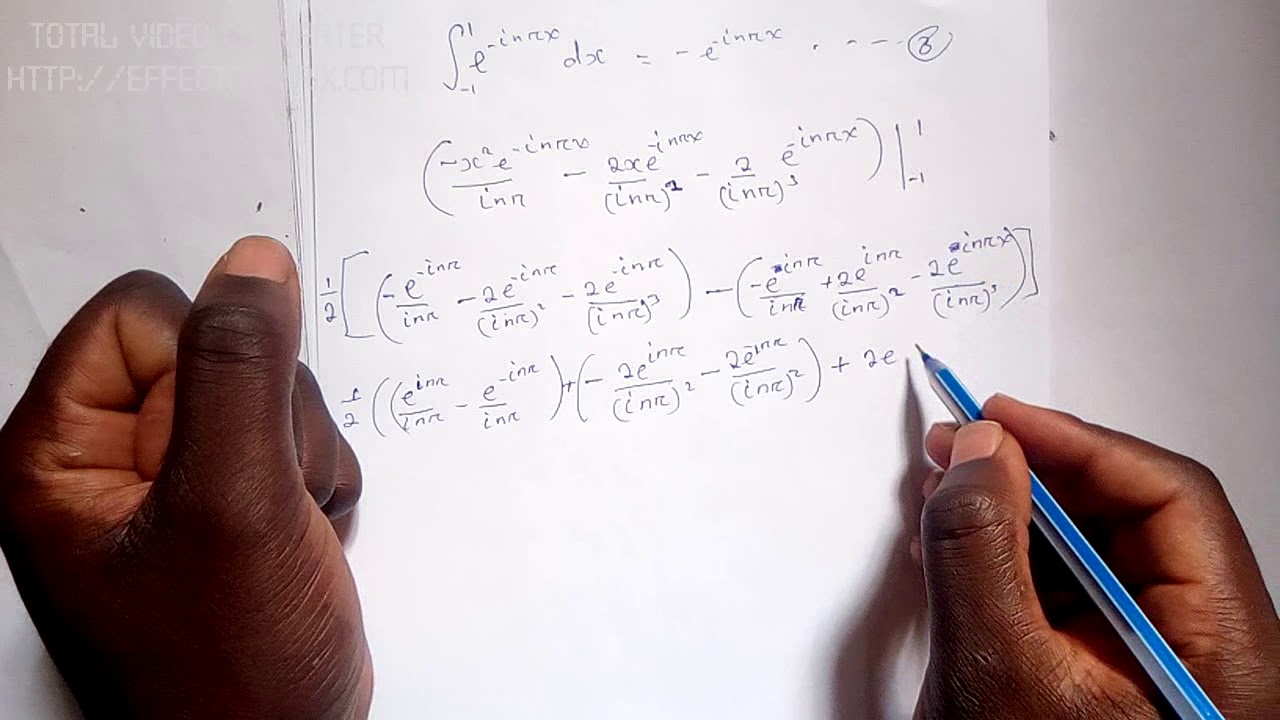 TOTAL VIDEO
HTTP://EFFECT
∫₋₁¹ e^(-inπx) dx = - e^(-inπx) . - - - ⑧
(-x²e^(-inπx)/inπ - 2xe^(-inπx)/(inπ)² - 2/(inπ)³ e^(-inπx))|₋₁¹
1/2[(-e^(-inπ)/inπ - 2e^(-inπ)/(inπ)² - 2e^(-inπ)/(inπ)³) - (-e^(inπ)/inπ + 2e^(inπ)/(inπ)² - 2e^(inπx)/(inπ)³)]
1/2((e^(inπ)/inπ - e^(-inπ)/inπ) + (-2e^(inπ)/(inπ)² - 2e^(-inπ)/(inπ)²) + 2e